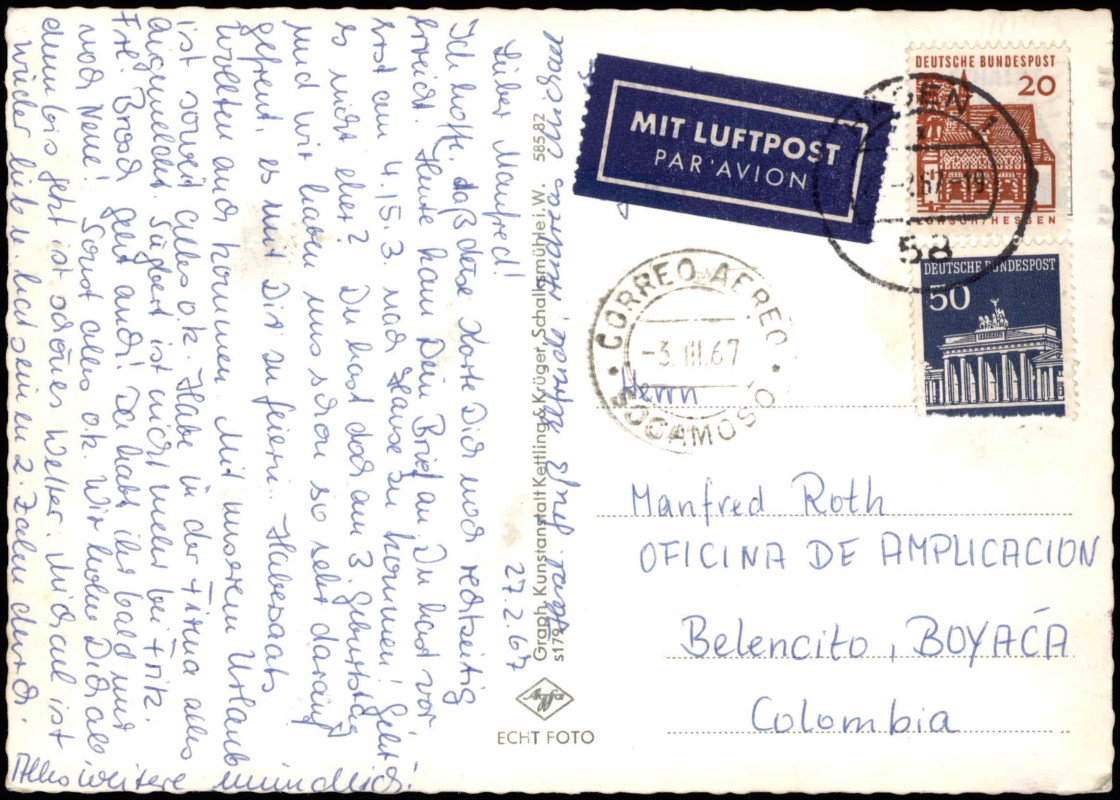 27.2.67
Lieber Manfred!
Ich hoffe, daß diese Karte Dich noch rechtzeitig
erreicht. Heute kam Dein Brief an. Du hast vor
erst am 4./5.3. nach Hause zu kommen! Geht
es nicht eher? Du hast doch am 3. Geburtstag
und wir haben uns schon so sehr darauf
gefreut, es mit Dir zu feiern. Habersaats
wollten auch kommen. Mit unserem Urlaub
ist soweit alles o.k. Habe in der Firma alles
ist nicht mehr bei Fritz.
Frl. Brosd geht auch! Da habt ihr bald nur
noch Neue! Sonst alles o.k. Wir holen Dich ab,
denn bis jetzt ist schönes Wetter. Michael ist
wieder lieb u. hat seinen 2. Zahn durch.
Alles weitere mündlich!
Graph. Kunstanstalt Kettling & Krüger, Schalksmühle i. W. 585 82
s179
Agfa
ECHT FOTO
MIT LUFTPOST
PAR AVION
DEUTSCHE BUNDESPOST
20
LORSCH/HESSEN
HAGEN 1
67-19
58
DEUTSCHE BUNDESPOST
50
CORREO AEREO
-3.III.67
SOGAMOSO
Herrn
Manfred Roth
OFICINA DE AMPLICACION
Belencito, BOYACÁ
Colombia